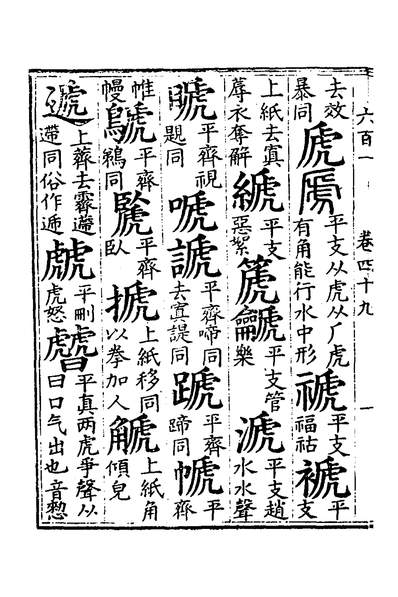 六百一
卷四十九
一
去效
暴同
虒
平支从虎从厂虎
有角能行水中形
禠
平支
福祜
褫
平
支
上紙去寘
蓐衣奪解
平支
惡絮
篪
平支管
樂
㴲
平支趙
水水聲
平齊視
題同
嗁
謕
平齊啼同
去寘諟同
蹏
平齊
蹄同
㡗
平
齊
帷
幔
鷈
平齊
鵜同
平齊
臥
搋
上紙移同
以拳加人
上紙角
傾皃
遞
上薺去霽
遰同俗作逓
虤
平刪
虎怒
平真兩虎爭聲从
曰口气出也音憖